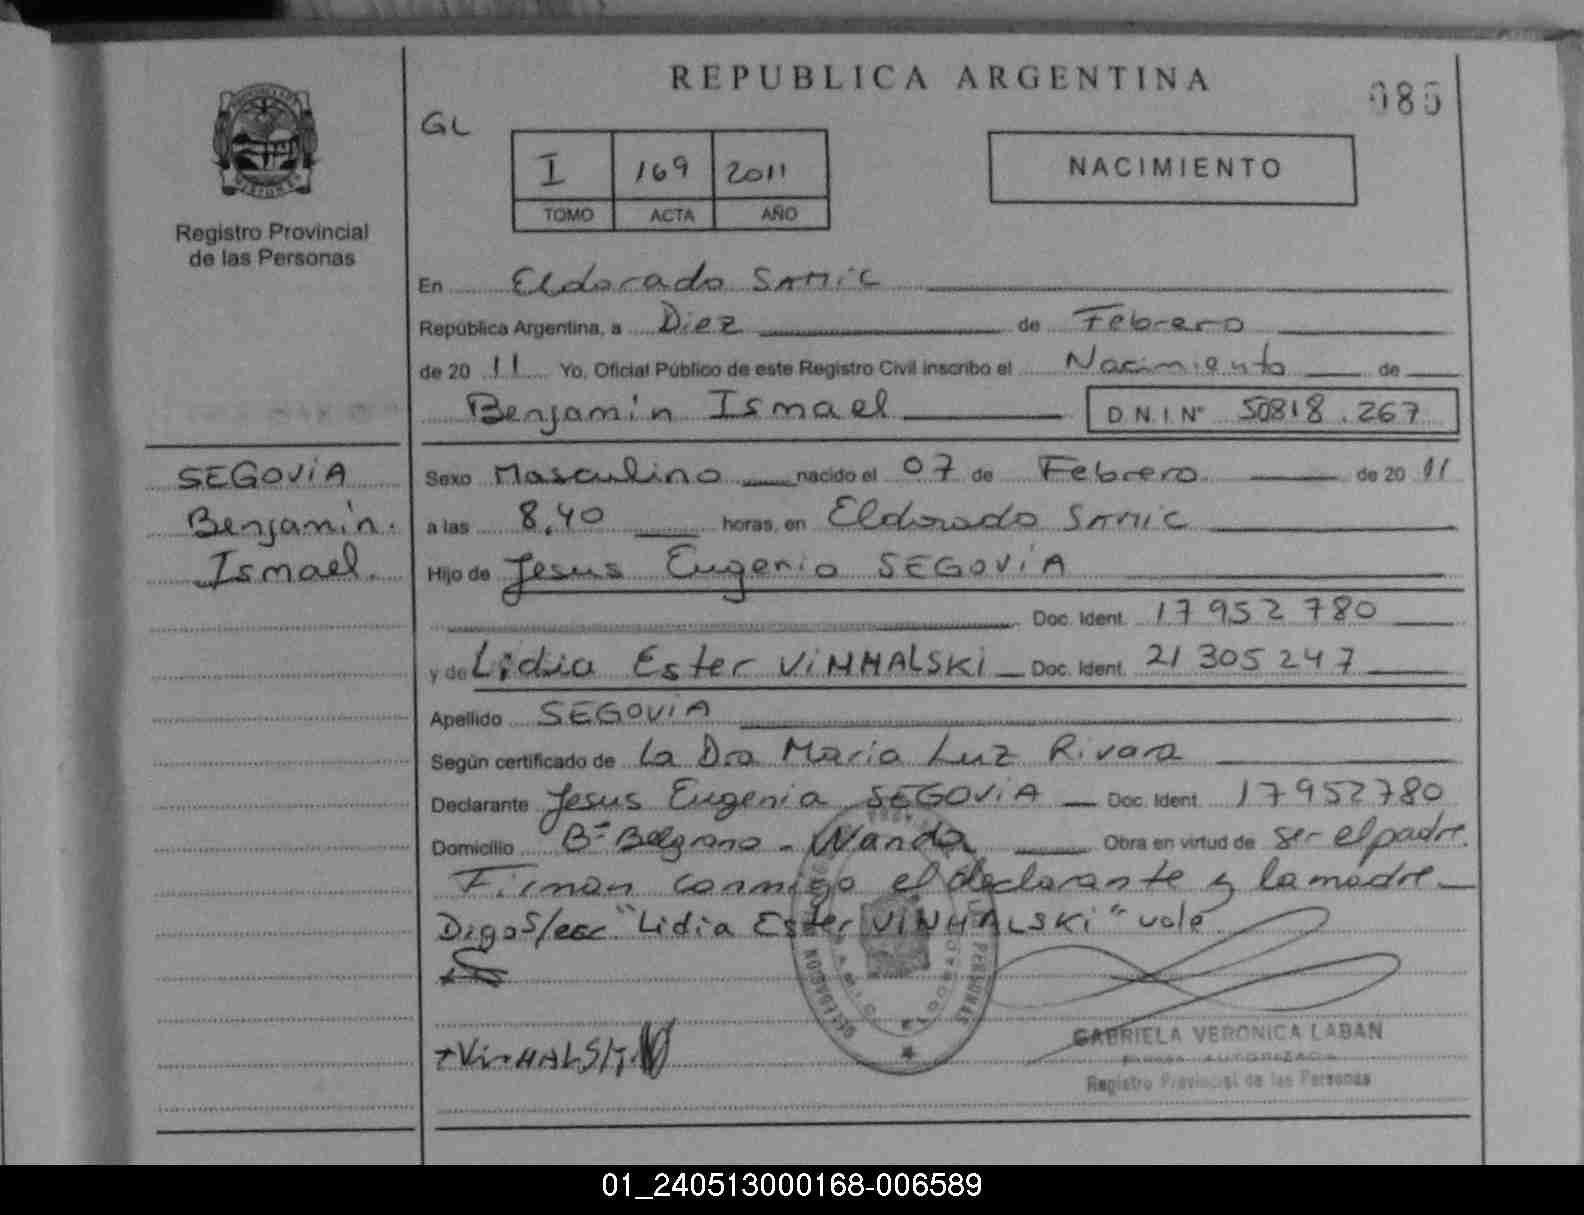 REPUBLICA ARGENTINA
085
GL
I 169 2011
TOMO ACTA AÑO
NACIMIENTO
Registro Provincial
de las Personas
En Eldorado SAMIC
República Argentina, a Diez de Febrero
de 20 11 Yo, Oficial Público de este Registro Civil inscribo el Nacimiento de
Benjamin Ismael D.N.I.N° 50818.267
SEGOVIA
Benjamin.
Ismael.
Sexo Masculino nacido el 07 de Febrero de 20 11
a las 8,40 horas, en Eldorado SAMIC
Hijo de Jesus Eugenio SEGOVIA
Doc. Ident. 17952780
y de Lidia Ester VINHALSKI Doc. Ident. 21305247
Apellido SEGOVIA
Según certificado de La Dra Maria Luz Rivara
Declarante Jesus Eugenia SEGOVIA Doc. Ident. 17952780
Domicilio B° Belgrano - Wanda Obra en virtud de ser el padre.
Firman conmigo el declarante y la madre
Digo S/ "Lidia Ester VINHALSKI" vale
GABRIELA VERONICA LABAN
Registro Provincial de las Personas
01_240513000168-006589